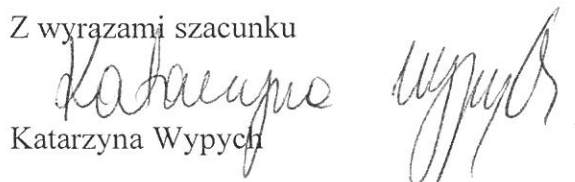 Z wyrazami szacunku
Katarzyna Wypych
Katarzyna Wypych